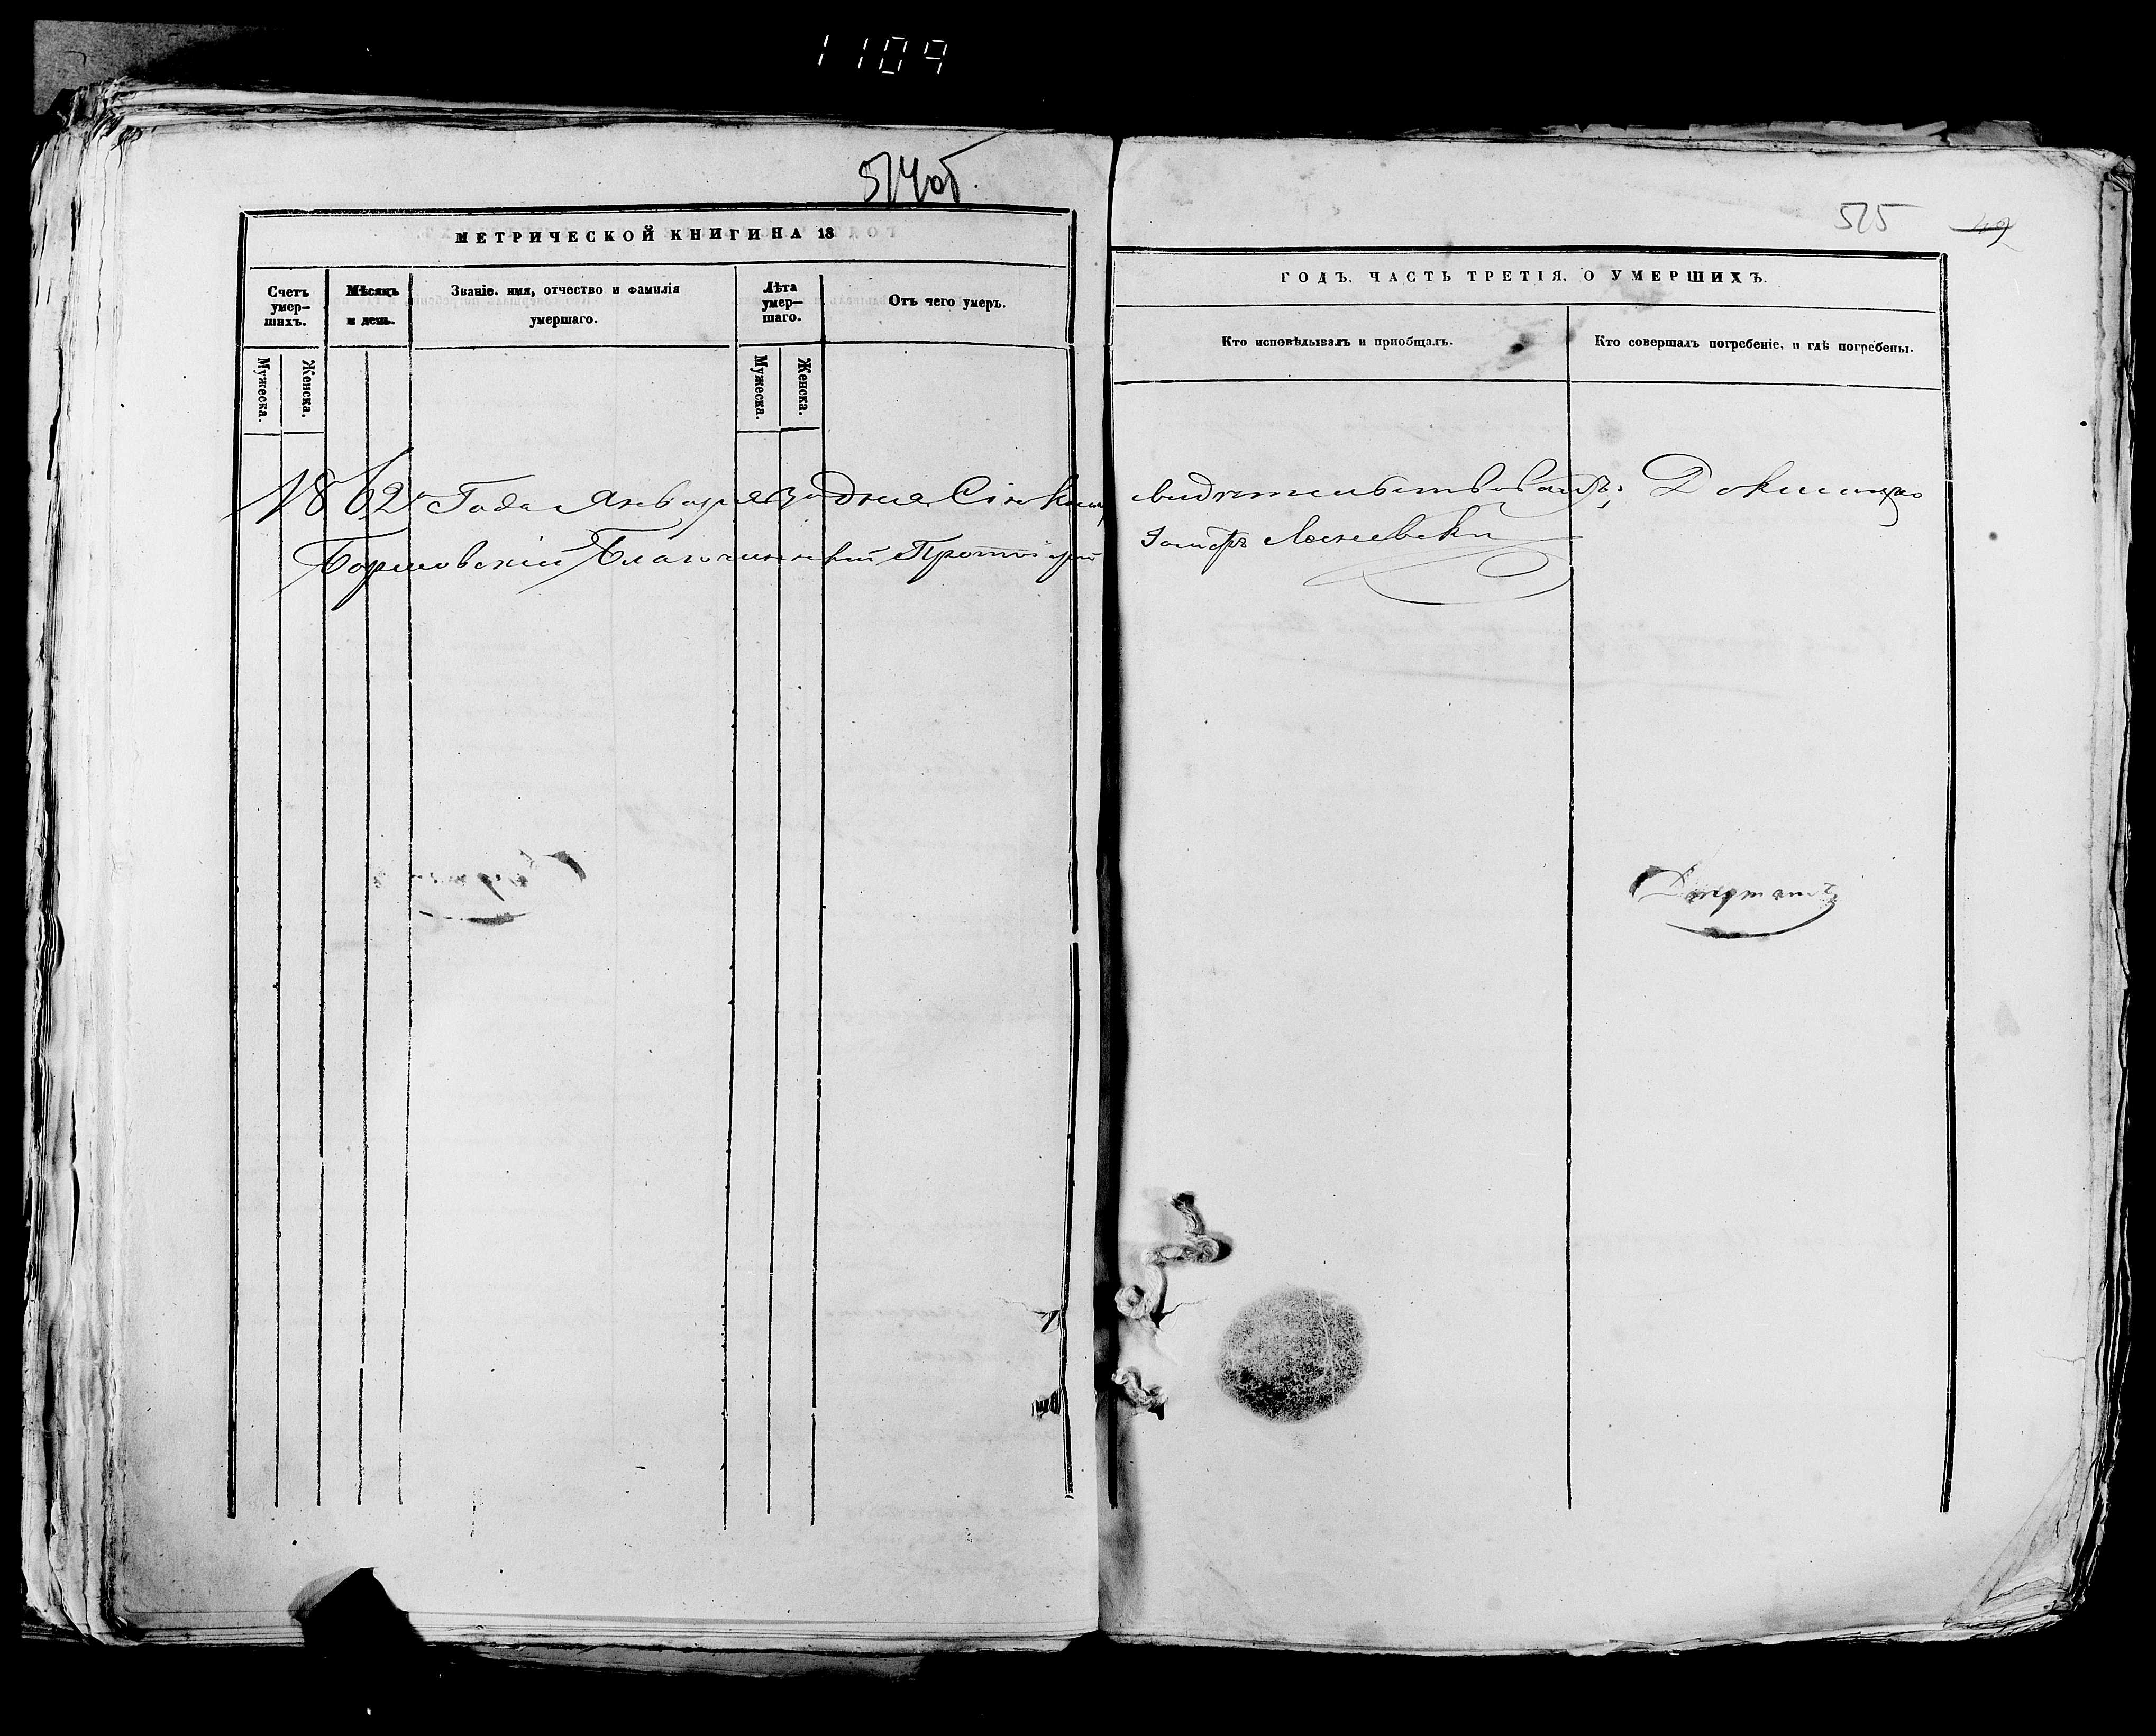 1109
514об.
МЕТРИЧЕСКОЙ КНИГИ НА 18
Счетъ умер— шихъ.
Мѣсяцъ и день.
Званіе. имя, отчество и фамилія умершаго.
Лѣта умер— шаго.
Отъ чего умеръ.
Мужеска.
Женска.
Мужеска.
Женска.
1862 Года Января 30 дня Сію Книгу
Борисовскій Благочинный Протоіерей
515
49
ГОДЪ. ЧАСТЬ ТРЕТІЯ, О УМЕРШИХЪ.
Кто исповѣдывалъ и пріобщалъ.
Кто совершалъ погребеніе, и гдѣ погребены.
свидѣтельствовалъ, Докшицкаго